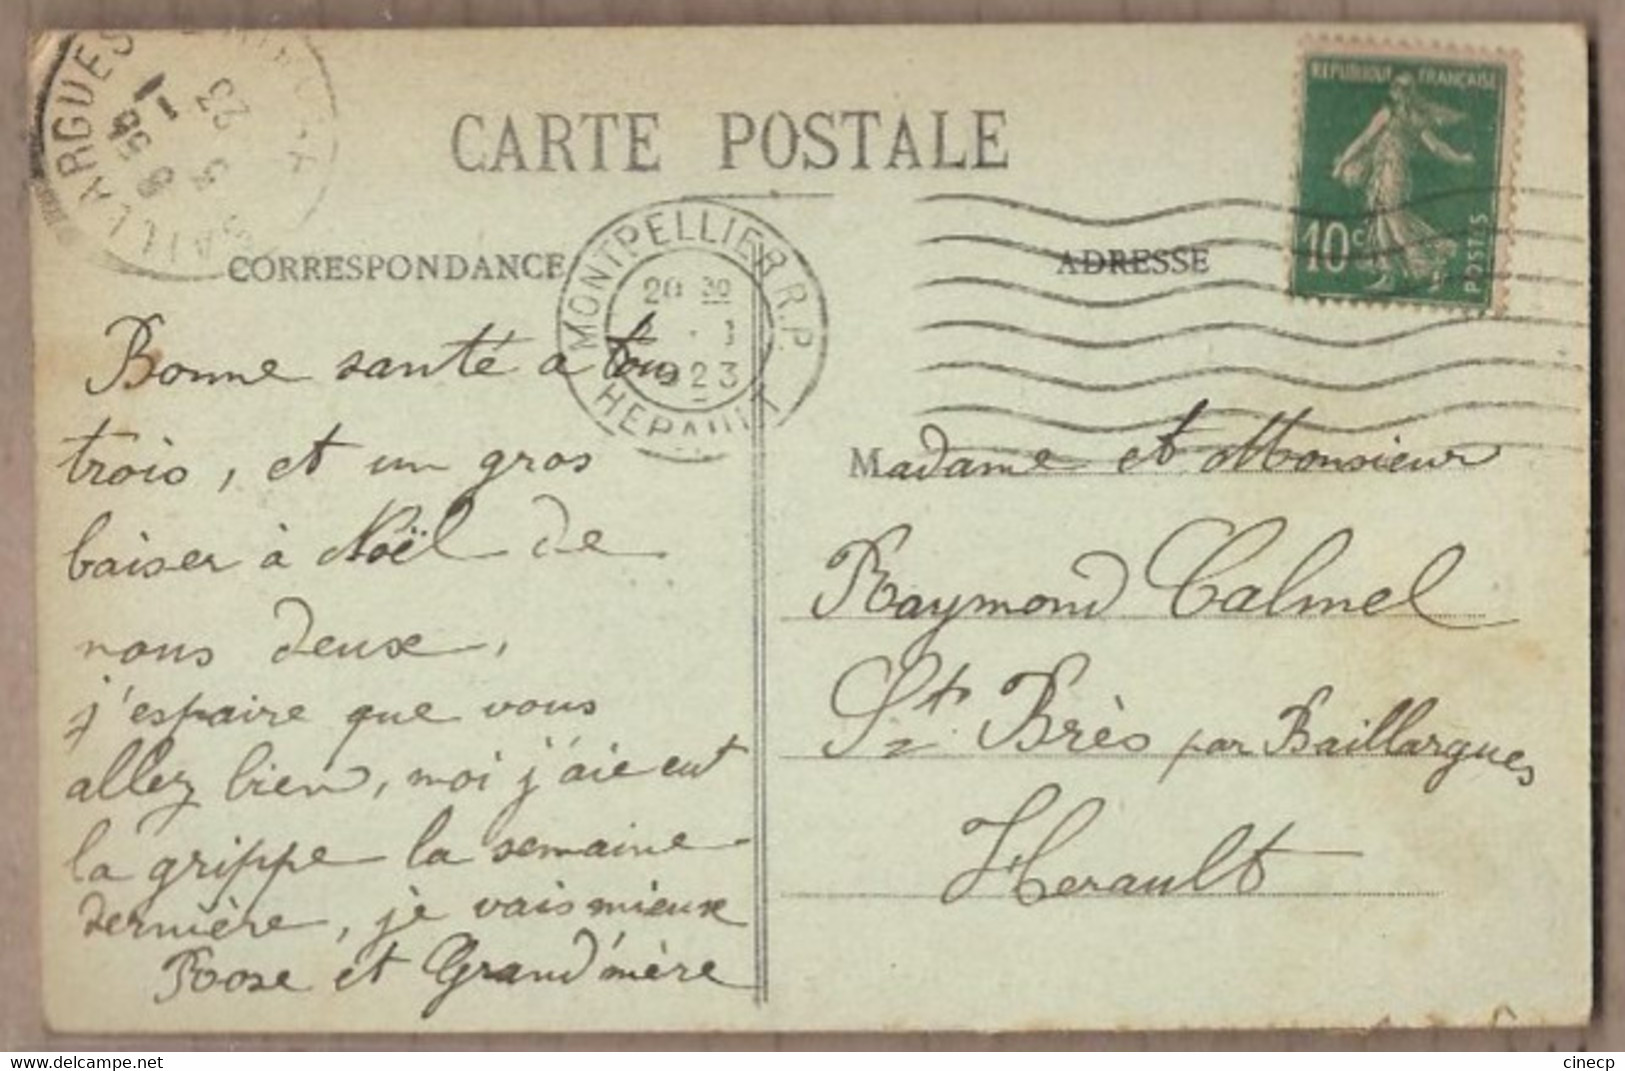 CARTE POSTALE
CORRESPONDANCE
ADRESSE
BAILLARGUES
MONTPELLIER R.P.
20 30
2 . 1
1923
HERAULT
REPUBLIQUE FRANÇAISE
10c
POSTES
Bonne santé a tous
trois, et un gros
baiser à Noël de
nous deux,
j'espaire que vous
allez bien, moi j'aie eut
la grippe la semaine
dernière, je vais mieux
Rose et Grand'mère
Madame et Monsieur
Raymond Calmel
St. Brès par Baillargues
Herault
https://www.delcampe.net
cinecp